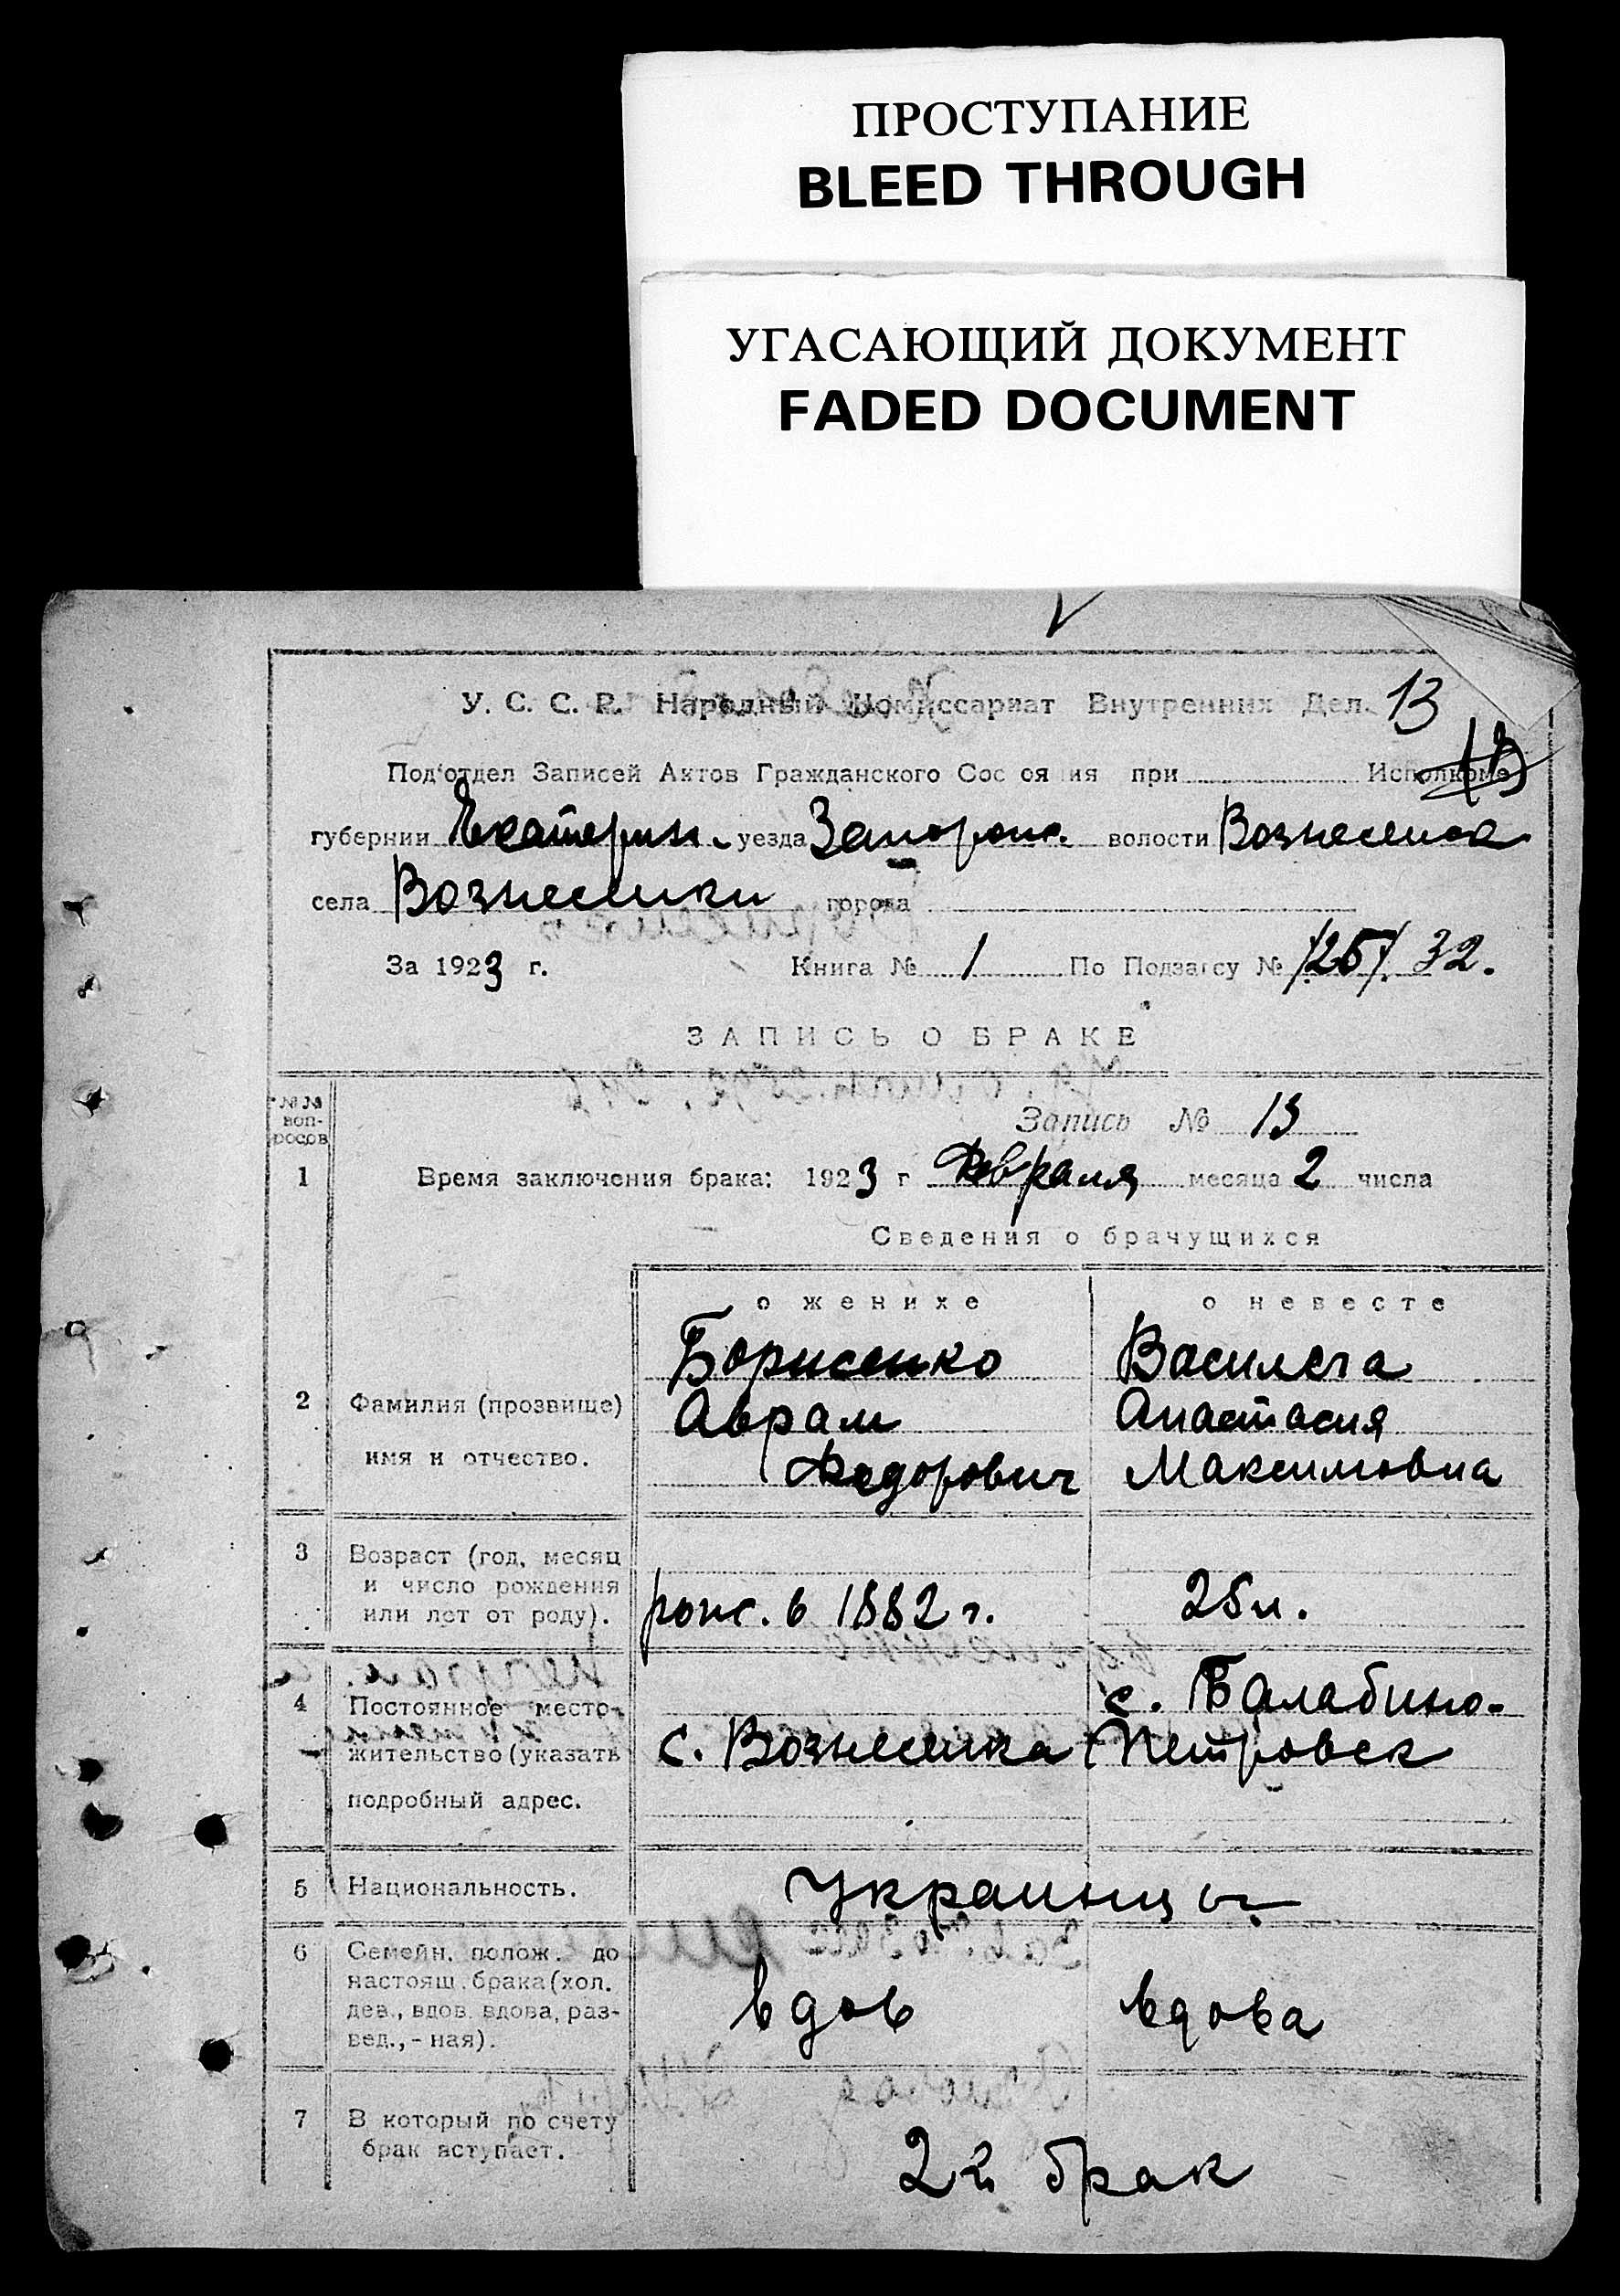 ПРОСТУПАНИЕ
BLEED THROUGH
УГАСАЮЩИЙ ДОКУМЕНТ
FADED DOCUMENT
У. С. С. Р. Народный Комиссариат Внутренних Дел. 13
Под'отдел Записей Актов Гражданского Сос оя ия при Исполкоме
губернии Екатерин. уезда Запорож. волости Вознесенск
села Вознесенки города
За 1923 г. Книга № 1 По Подзагсу № /25/ 32.
ЗАПИСЬ О БРАКЕ
№№ воп-
росов
Запись № 13
1 Время заключения брака: 1923 г Февраля месяца 2 числа
Сведения о брачущихся
о женихе о невесте
Борисенко Василега
2 Фамилия (прозвище) Аврам Анастасия
имя и отчество. Федорович Максимовна
3 Возраст (год, месяц
и число рождения
или лет от роду). рож. в 1882 г. 25 л.
4 Постоянное место- с. Балабино-
жительство (указать с. Вознесенка Петровск
подробный адрес.
5 Национальность. Украинцы
6 Семейн. полож. до
настоящ. брака (хол.
дев., вдов. вдова, раз- вдов вдова
вед., - ная).
7 В который по счету
брак вступает. 2й брак